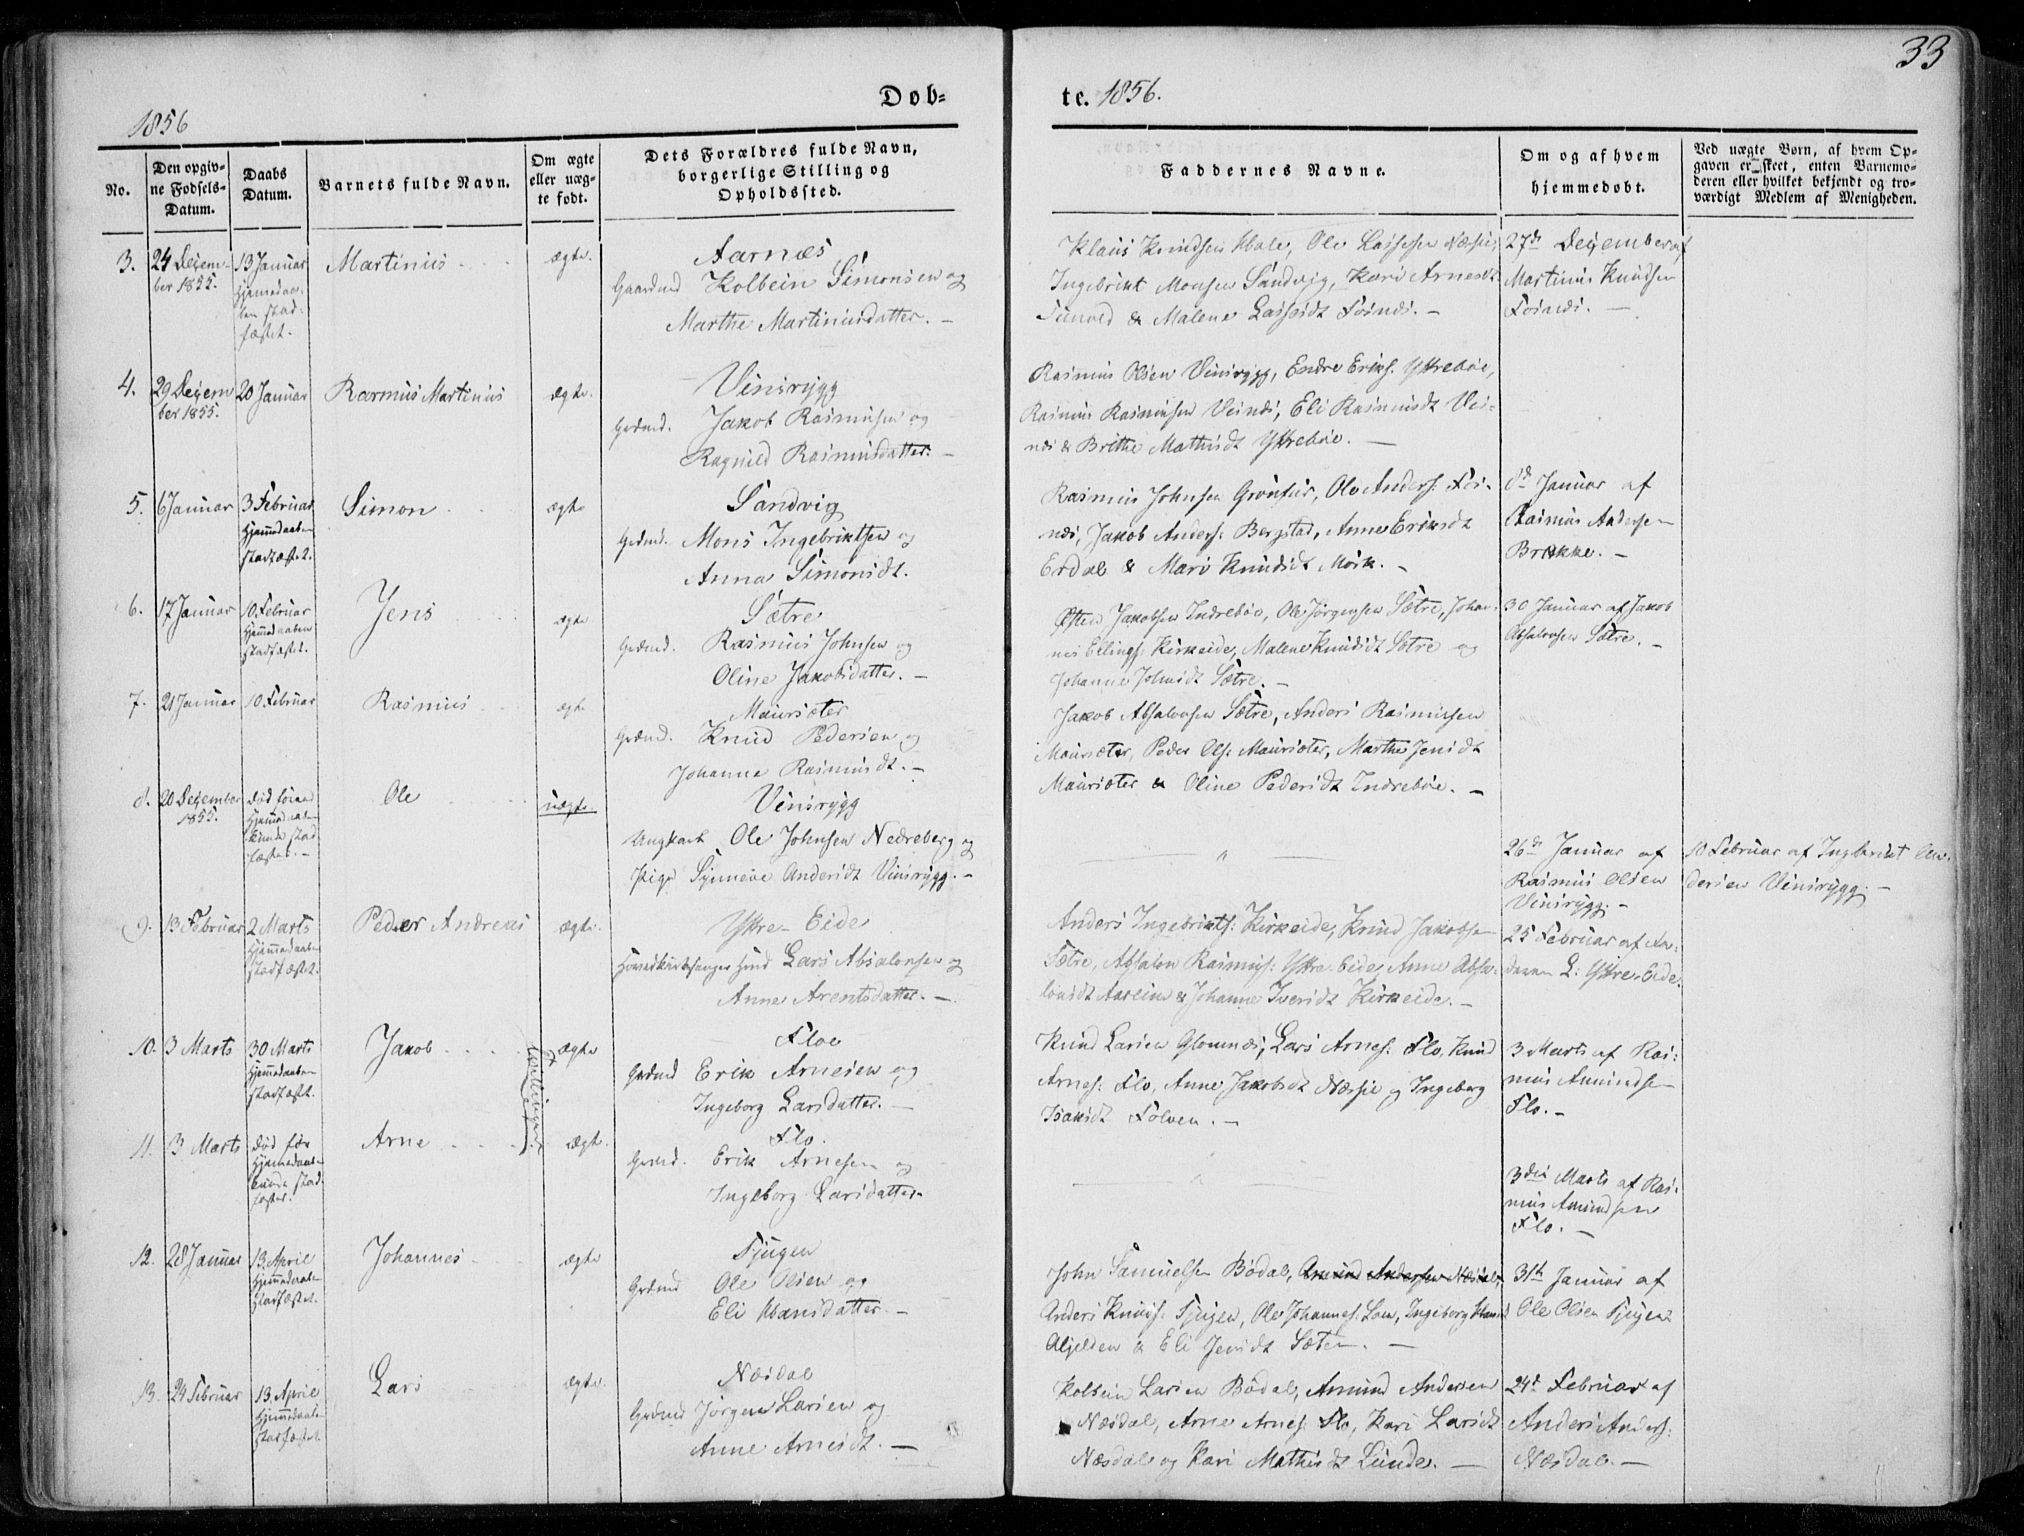 33
Døb-
te. 1856.
1856
No.
Den opgiv-
ne Fødsels-
Datum.
Daabs
Datum.
Barnets fulde Navn.
Om ægte
eller uæg-
te født.
Dets Forældres fulde Navn,
borgerlige Stilling og
Opholdssted.
Faddernes Navne.
Om og af hvem
hjemmedøbt.
Ved uægte Børn, af hvem Op-
gaven er skeet, enten Barnemo-
deren eller hvilket bekjendt og tro-
værdigt Medlem af Menigheden.
3.
24 Decem-
ber 1855.
13 Januar
Hjemedaa-
ben stad-
fæstet.
Martinus
ægte.
Aarnæs
Gaardmd Kolbein Simonsen og
Marthe Martinusdatter. -
Klaus Knudsen Hole, Ole Lassesen Næsse,
Ingebrikt Monsen Sandvig, Kari Arnesdt
& Malene Lassesdt Fosnæs. -
27de December af
Martinus Knudsen
Fosnæs. -
4.
29 Decem
ber 1855.
20 Januar
Rasmus Martinus
ægte.
Vinsrygg
Grdmd. Jakob Rasmusen og
Ragnild Rasmusdatter. -
Rasmus Olsen Vinsrygg, Endre Eriks. Yttrebøe,
Rasmus Rasmusen Vesnæs, Eli Rasmusdt Ves-
næs & Brithe Mathisdt Yttrebøe. -
5.
6 Januar
3 Februar
Hjemmedaaben
stadfæstet.
Simon
ægte
Sandvig
Grdmd. Mons Ingebriktsen og
Anna Simonsdt.
Rasmus Johnsen Grønfur, Ole Anders. Fos-
næs, Jakob Anders. Bergstad, Anne Eriksdt
Erdal & Mari Knudsdt Mork. -
8de Januar af
Rasmus Andersen
Brække. -
6.
17 Januar
10 Februar
Hjemmedaaben
stadfæstet.
Jens
ægte
Sætre
Grdmd. Rasmus Johnsen og
Oline Jakobsdatter. -
Østen Jakobsen Indrebøe, Ole Jørgensen Sætre, Johan-
nes Ellings. Kirkeide, Malene Knudsdt Sætre og
Johanne Johnsdt Sætre. -
30 Januar af Jakob
Absalonsen Sætre. -
7.
21 Januar
10 Februar
Rasmus
ægte
Maursæter
Grdmd. Knud Pedersen og
Johanne Rasmusdt. -
Jakob Absalonsen Sætre, Anders Rasmusen
Maursæter, Peder Ols. Maursæter, Marthe Jensdt
Maursæter & Oline Pedersdt Indrebøe. -
8.
20 December
1855.
død førend
Hjemmedaaben
kunde stad-
fæstes. -
Ole
uægte.
Vinsrygg
Ungkarl Ole Johnsen Nedreberg og
Pige Synneve Andersdt Vinsrygg. -
"
26de Januar af
Rasmus Olsen
Vinsrygg. -
10 Februar af Ingebrikt An-
dersen Vinsrygg. -
9.
13 Februar
2 Marts
Hjemmedaaben
stadfæstet.
Peder Andreas
ægte.
Yttre-Eide
Lars Absalonsen og
Anne Arentsdatter. -
Anders Ingebrikts. Kirkeide, Knud Jakobsen
Sætre, Absalon Rasmus. Yttre-Eide, Anne Absa-
lonsdt Aarheim & Johanne Iversdt Kirkeide. -
25 Februar af
L. Yttre-Eide.
10.
3 Marts
30 Marts
Hjemmedaaben
stadfæstet.
Jakob
Tvillinger
ægte
Floe
Grdmd Erik Arnesen og
Ingeborg Larsdatter. -
Knud Larsen Glomnæs, Lars Arnes. Flo, Knud
Arnes. Flo, Anne Jakobsdt Næsse og Ingeborg
Isaksdt Folven. -
3 Marts af Ras-
mus Amundsen
Flo. -
11.
3 Marts
død før
Hjemmedaaben
kunde stad-
fæstes.
Arne
ægte.
Flo.
Grdmd. Erik Arnesen og
Ingeborg Larsdatter
"
3die Marts af Ras-
mus Amundsen
Flo. -
12.
28 Januar
13 April
Hjemmedaaben
stadfæstet.
Johannes
ægte
Tjugen
Grdmd Ole Olsen og
Eli Hansdatter -
John Samuelsen Bødal, Amund Andersen Næsdal,
Anders Knuds. Tjugen, Ole Johannes. Loen, Ingeborg Hansd
Aljelden & Eli Jensdt Sæten. -
31te Januar af
Ole Olsen Tjugen
13.
24 Februar
13 April
Hjemmedaaben
stadfæstet
Lars
ægte.
Næsdal
Grdmd Jørgen Larsen og
Anne Arnesdt. -
Kolbein Larsen Bødal, Amund Andersen
Næsdal, Arne Arnes. Flo, Kari Larsdt
Næsdal og Kari Mathisdt Lunde. -
24de Februar af
Anders Anders.
Næsdal. -